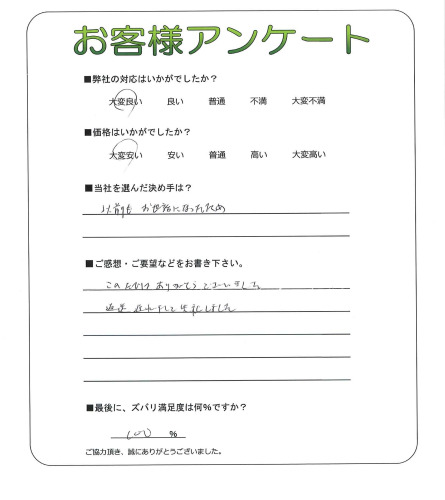 お客様アンケート
■弊社の対応はいかがでしたか？
大変良い 良い 普通 不満 大変不満
■価格はいかがでしたか？
大変安い 安い 普通 高い 大変高い
■当社を選んだ決め手は？
以前もお世話になったため
■ご感想・ご要望などをお書き下さい。
このたびはありがとうございました
返送遅れまして失礼しました
■最後に、ズバリ満足度は何％ですか？
100 ％
ご協力頂き、誠にありがとうございました。